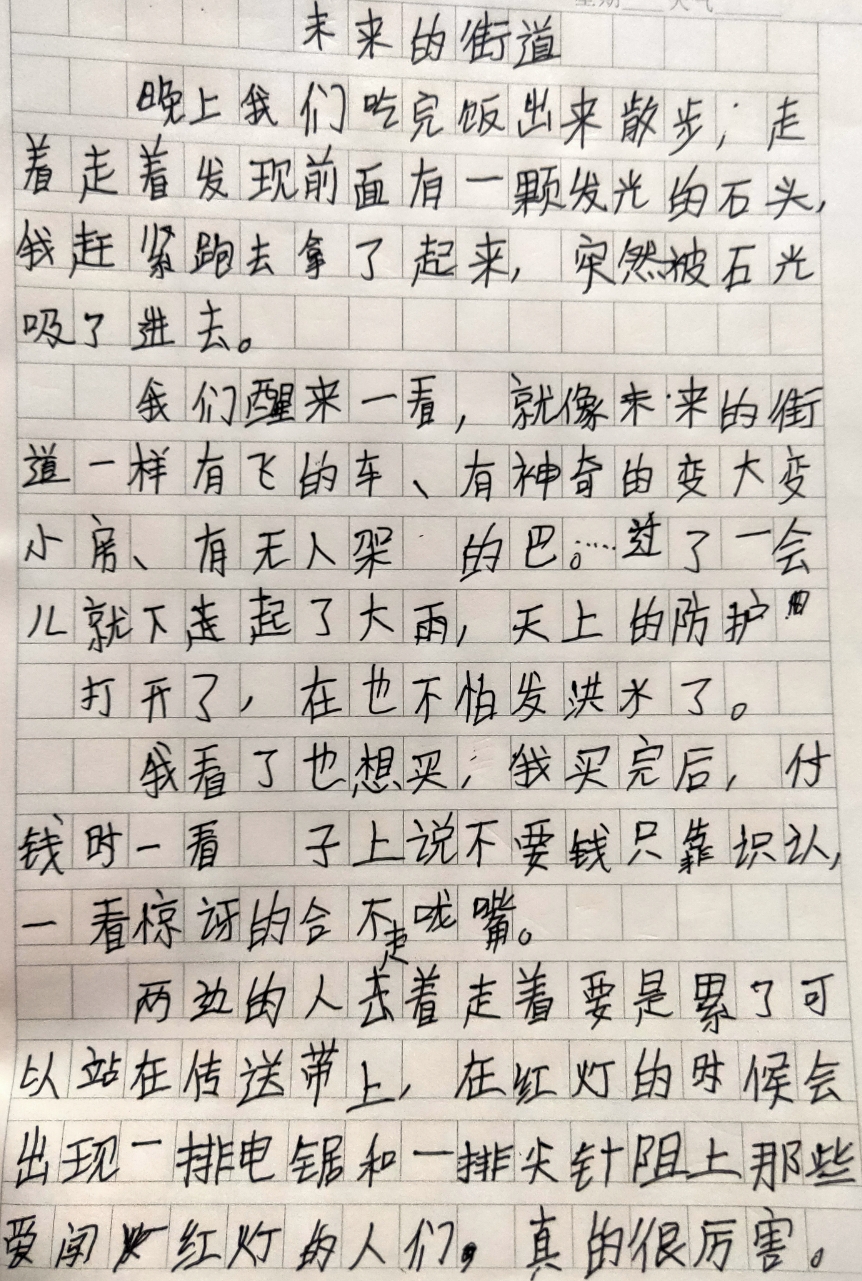 未来的街道
晚上我们吃完饭出来散步，走
着走着发现前面有一颗发光的石头，
我赶紧跑去拿了起来，突然被石光
吸了进去。
我们醒来一看，就像未来的街
道一样有飞的车、有神奇的变大变
小房、有无人架的巴。……过了一会
儿就下起了大雨，天上的防护
打开了，在也不怕发洪水了。
我看了也想买，我买完后，付
钱时一看 子上说不要钱只靠识认，
一看惊讶的合不咙嘴。
两边的人走着走着要是累了可
以站在传送带上，在红灯的时候会
出现一排电锯和一排尖针阻上那些
爱闯红灯的人们。真的很厉害。